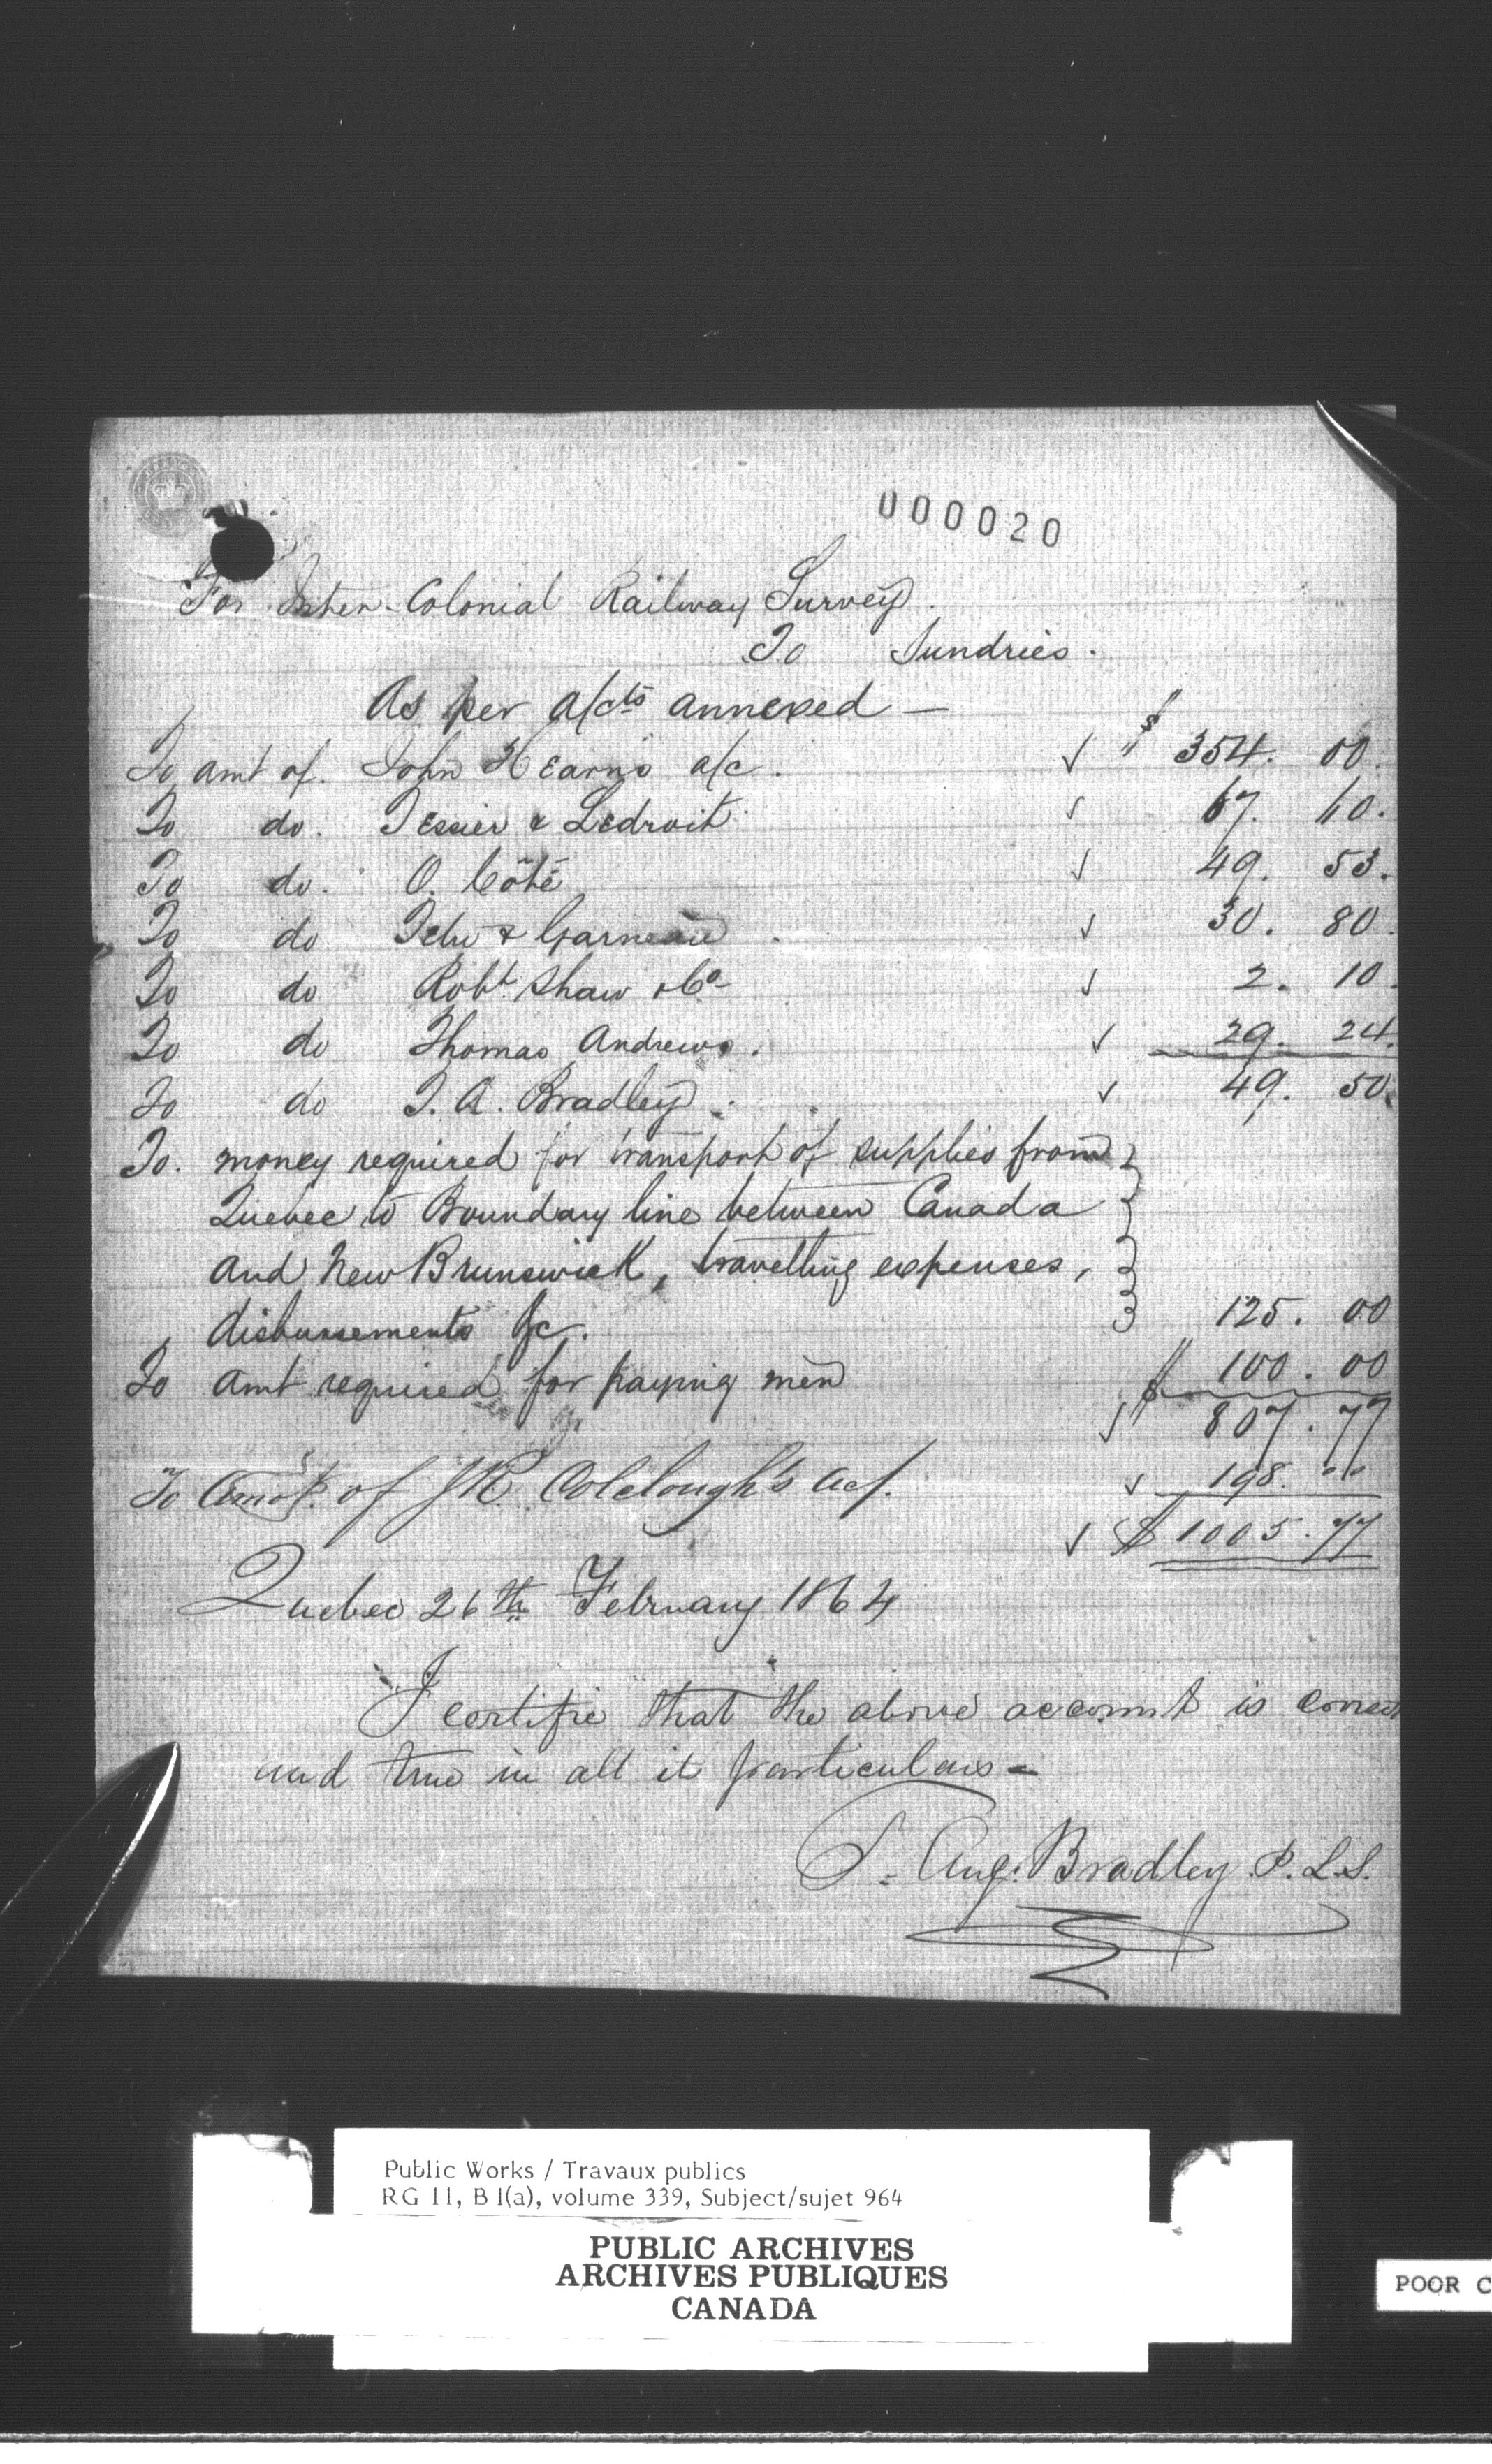 000020
For Inter-Colonial Railway Survey.
To Sundries.
As per a/cts annexed —
To amt of. John Hearn's a/c. √ $ 354. 00.
To do. Tessier & Ledroit √ 67. 60.
To do. O. Côté √ 49. 53.
To do Tetu & Garneau √ 30. 80.
To do Robt Shaw & Co √ 2. 10.
To do Thomas Andrews. √ 29. 24.
To do T. A. Bradley. √ 49. 50
To. money required for transport of supplies from
Quebec to Boundary line between Canada
and New Brunswick, travelling expenses,
disbursements &c. 125. 00
To amt required for paying men 100. 00
√ $ 807. 77
To Amot. of J R. Colclough's acc. √ 198. ""
√ $ 1005. 77
Quebec 26th February 1864
I certifie that the above account is correct
and true in all it particulars —
T. Aug: Bradley P. L. S.
Public Works / Travaux publics
RG 11, B 1(a), volume 339, Subject/sujet 964
PUBLIC ARCHIVES
ARCHIVES PUBLIQUES
CANADA
POOR C